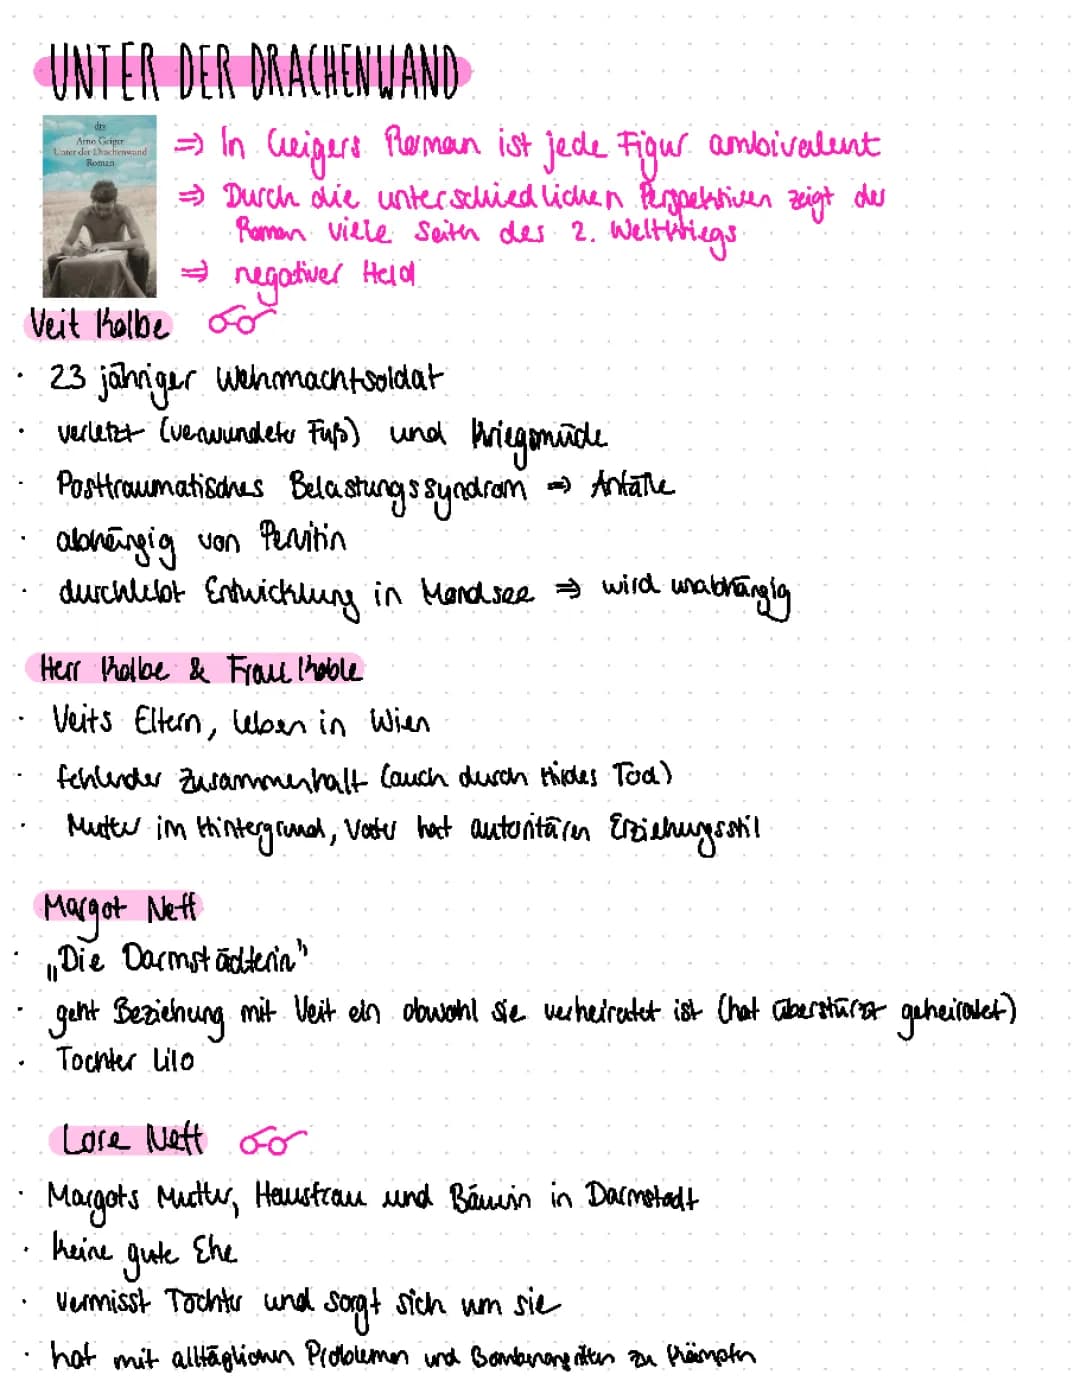 UNTER DER DRACHENWAND
dtv
Arno Geiger
Unter der Drachenwand
Roman
⇒ In Geigers Roman ist jede Figur ambivalent
⇒ Durch die unterschiedlichen Perspektiven zeigt der
Roman viele Seiten des 2. Weltkriegs
⇒ negativer Held
Veit Kolbe
· 23 jähriger Wehrmachtsoldat
· verletzt (verwundeter Fuß) und Kriegsmüde
· Posttraumatisches Belastungssyndrom ⇒ Anfälle
· abhängig von Pervitin
· durchlebt Entwicklung in Mondsee ⇒ wird unabhängig
Herr Kolbe & Frau Koble
· Veits Eltern, leben in Wien
· fehlender Zusammenhalt (auch durch Hildes Tod)
· Mutter im Hintergrund, Vater hat autoritären Erziehungsstil
Margot Neff
· „Die Darmstädterin"
· geht Beziehung mit Veit ein obwohl sie verheiratet ist (hat überstürzt geheiratet)
· Tochter Lilo
Lore Neff
· Margots Mutter, Hausfrau und Bäuerin in Darmstadt
· keine gute Ehe
· vermisst Tochter und sorgt sich um sie
· hat mit alltäglichen Problemen und Bombenangriffen zu kämpfen